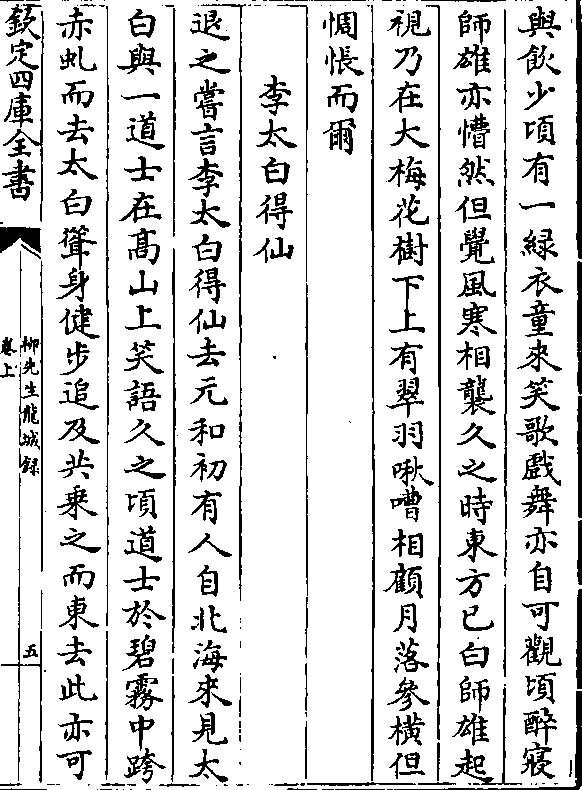 與飲少頃有一緑衣童來笑歌戲舞亦自可觀頃醉寢
師雄亦懵然但覺風寒相襲久之時東方已白師雄起
視乃在大梅花樹下上有翠羽啾嘈相顧月落參橫但
惆悵而爾
李太白得仙
退之嘗言李太白得仙去元和初有人自北海來見太
白與一道士在髙山上笑語久之頃道士於碧霧中跨
赤虬而去太白聳身健步追及共乗之而東去此亦可
欽定四庫全書
柳先生龍城録
卷上
五